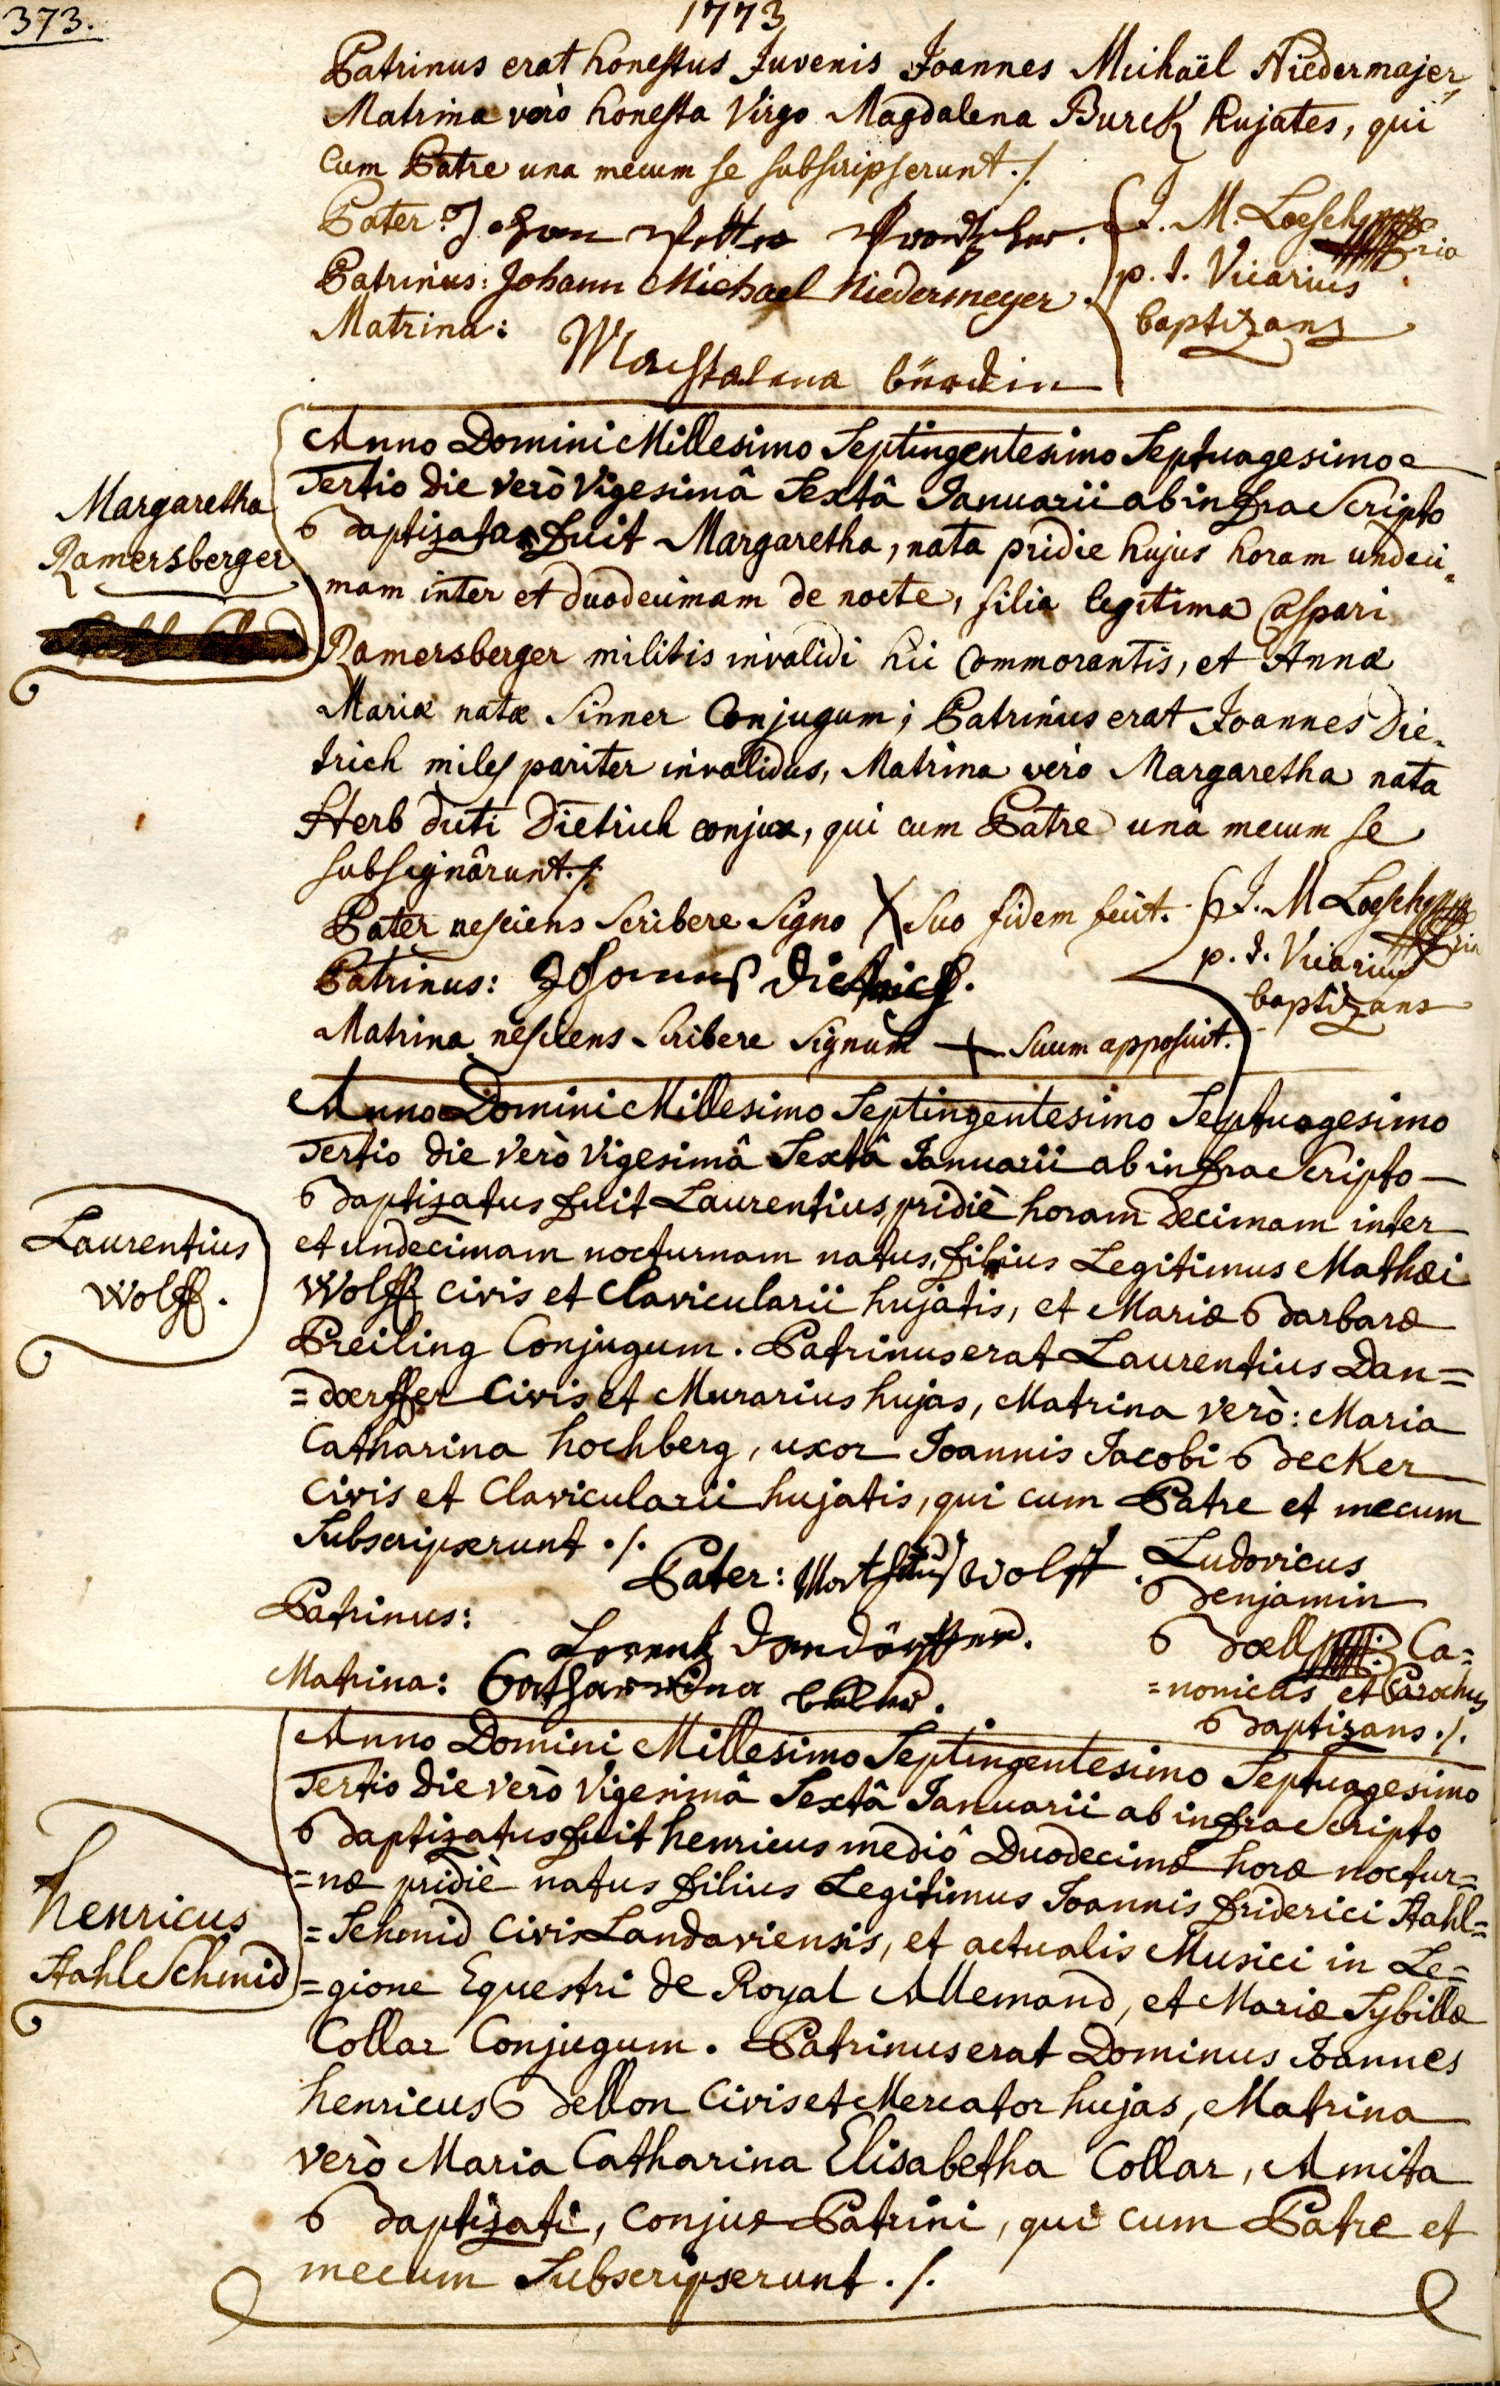 373.
1773
Patrinus erat honestus Juvenis Joannes Michaël Niedermajer,
Matrina verò honesta Virgo Magdalena Burck Hujates, qui
cum Patre una mecum se subscripserunt ./.
Pater: Johann
Patrinus: Johann Michael Niedermeyer.
Matrina:
Magdalena bürckin
J. M. Loesch
p. t. Vicarius
baptizans
Margaretha
Ramersberger
Anno Domini Millesimo Septingentesimo Septuagesimo
Tertio die verò Vigesimâ Sextâ Januarii ab infra Scripto
Baptizata fuit Margaretha, nata pridie hujus horam undeci=
mam inter et duodecimam de nocte, filia legitima Caspari
Ramersberger militis invalidi hic Commorantis, et Annæ
Mariæ natæ Sinner Conjugum; Patrinus erat Joannes Die=
trich miles pariter invalidus, Matrina verò Margaretha nata
Herb dicti Dietrich conjux, qui cum Patre unà mecum se
subsignârunt ./.
Pater nesciens Scribere Signo X Suo fidem fecit.
Patrinus: Johannes Dietrich.
Matrina nesciens Scribere Signum + Suum apposuit.
J. M Loesch
p. t. Vicarius
baptizans
Laurentius
Wolff.
Anno Domini Millesimo Septingentesimo Septuagesimo
Tertio die verò Vigesimâ Sextâ Januarii ab infra Scripto
Baptizatus fuit Laurentius, pridiè horam decimam inter
et undecimam nocturnam natus, filius Legitimus Mathæi
Wolff Civis et Clavicularii hujatis, et Mariæ Barbaræ
Preiling Conjugum. Patrinus erat Laurentius Dan=
=doerffer Civis et Murarius hujas, Matrina verò: Maria
Catharina hochberg, uxor Joannis Jacobi Becker
Civis et Clavicularii hujatis, qui cum Patre et mecum
Subscripserunt ./.
Pater: Matheus Wolff
Patrinus:
Lorentz Dandörffer.
Matrina: Catharina
Ludovicus
Benjamin
Boell Ca=
=nonicus et Parochus
Baptizans ./.
henricus
StahlSchmid
Anno Domini Millesimo Septingentesimo Septuagesimo
Tertio die verò Vigesimâ Sextâ Januarii ab infra Scripto
Baptizatus fuit henricus mediô Duodecimæ horæ noctur=
=næ pridiè natus filius Legitimus Joannis friderici Stahl=
=Schmid Civis Landaviensis, et actualis Musici in Le=
=gione Equestri de Royal Allemand, et Mariæ Sybillæ
Collar Conjugum. Patrinus erat Dominus Joannes
henricus Bellon Civis et Mercator hujas, Matrina
verò Maria Catharina Elisabetha Collar, Amita
Baptizati, conjux Patrini, qui cum Patre et
mecum Subscripserunt ./.